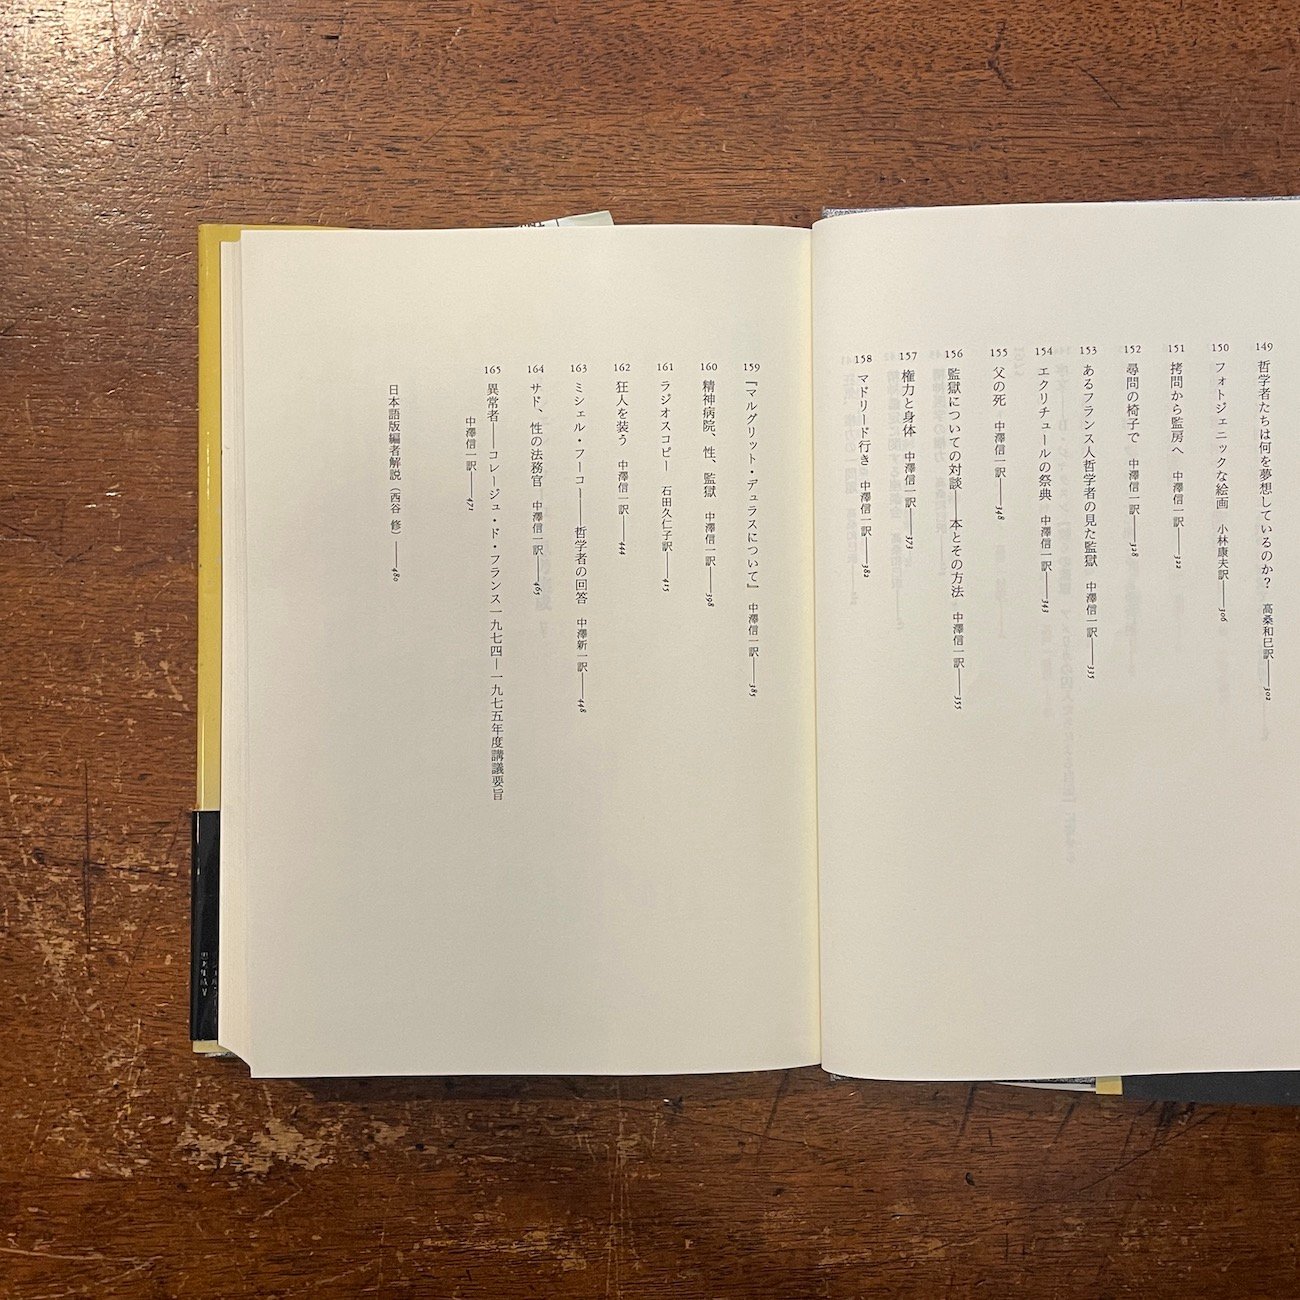 149 哲学者たちは何を夢想しているのか? 高桑和巳訳――302
150 フォトジェニックな絵画 小林康夫訳――306
151 拷問から監房へ 中澤信一訳――322
152 尋問の椅子で 中澤信一訳――328
153 あるフランス人哲学者の見た監獄 中澤信一訳――335
154 エクリチュールの祭典 中澤信一訳――343
155 父の死 中澤信一訳――348
156 監獄についての対談――本とその方法 中澤信一訳――355
157 権力と身体 中澤信一訳――373
158 マドリード行き 中澤信一訳――382
159 『マルグリット・デュラスについて』 中澤信一訳――385
160 精神病院、性、監獄 中澤信一訳――398
161 ラジオスコピー 石田久仁子訳――415
162 狂人を装う 中澤信一訳――444
163 ミシェル・フーコー――哲学者の回答 中澤新一訳――448
164 サド、性の法務官 中澤信一訳――465
165 異常者――コレージュ・ド・フランス一九七四―一九七五年度講義要旨
中澤信一訳――471
日本語版編者解説（西谷 修）――480